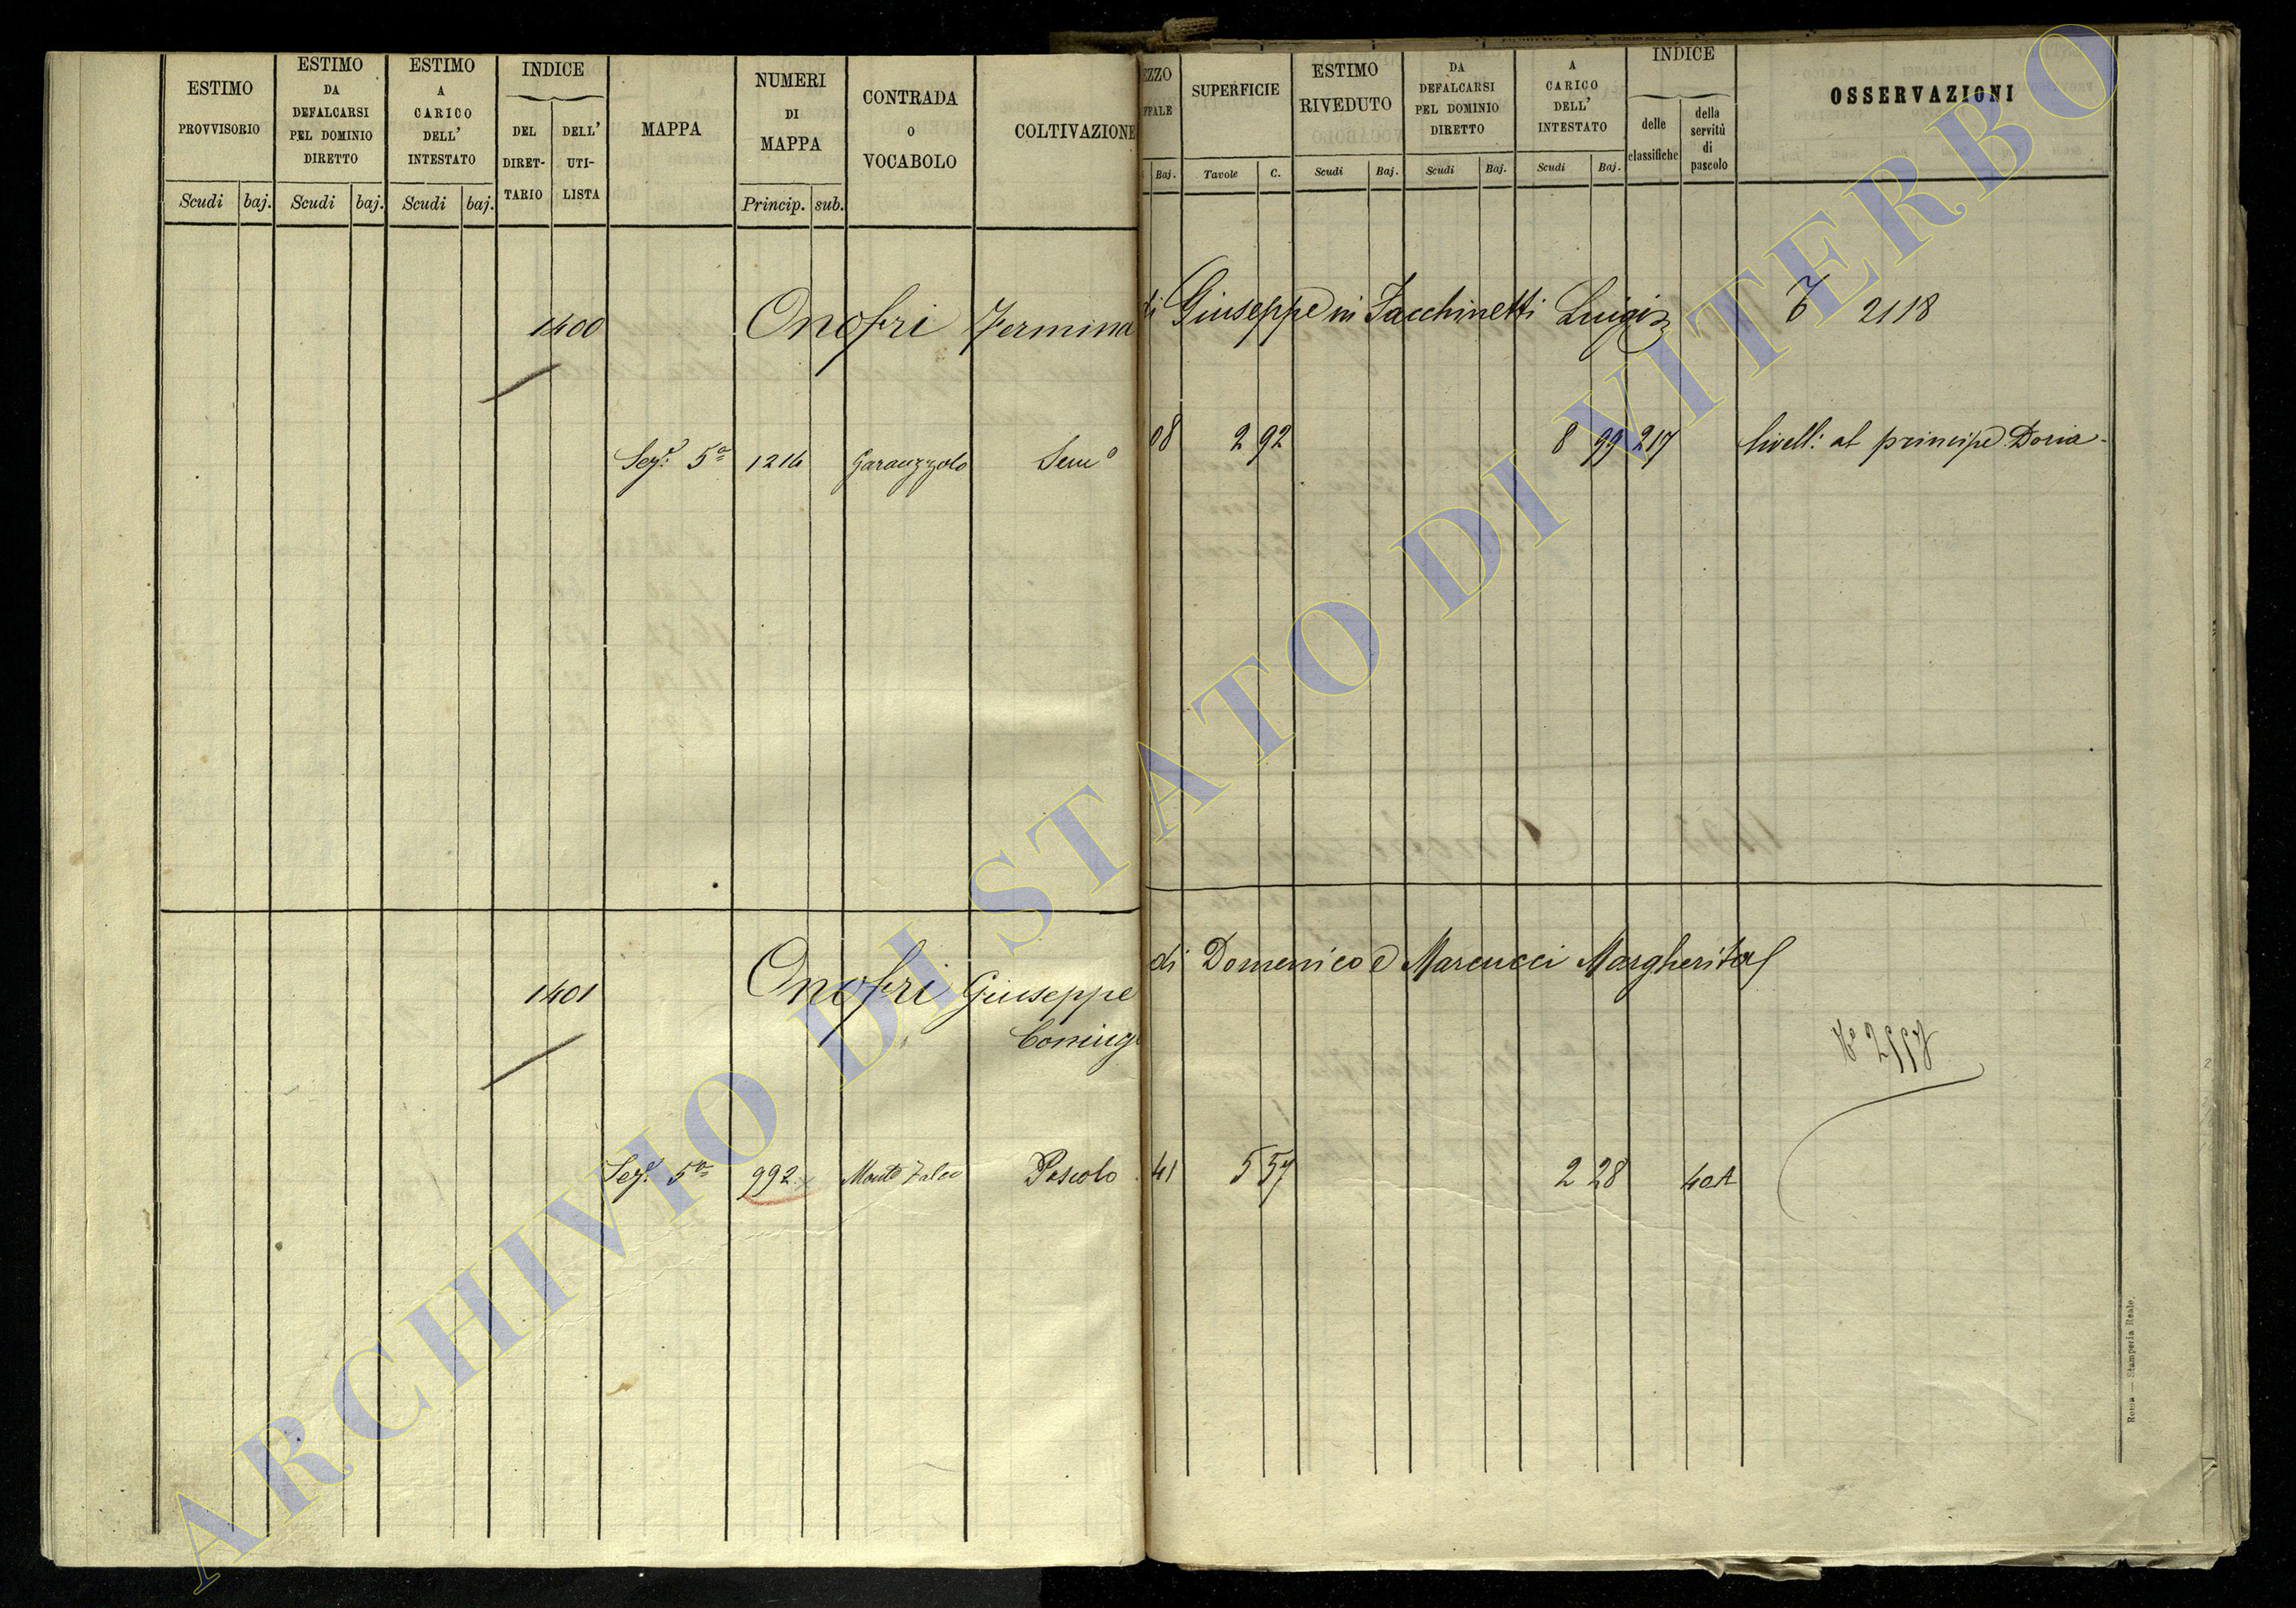 ESTIMO PROVVISORIO Scudi baj.
ESTIMO DA DEFALCARSI PEL DOMINIO DIRETTO Scudi baj.
ESTIMO A CARICO DELL' INTESTATO Scudi baj.
INDICE DEL DIRETTARIO DELL' UTILISTA
MAPPA
NUMERI DI MAPPA Princip. sub.
CONTRADA O VOCABOLO
COLTIVAZIONE
EZZO FFALE Baj.
SUPERFICIE Tavole C.
ESTIMO RIVEDUTO Scudi Baj.
DA DEFALCARSI PEL DOMINIO DIRETTO Scudi Baj.
A CARICO DELL' INTESTATO Scudi Baj.
INDICE delle classifiche della servitù di pascolo
OSSERVAZIONI
1400 Onofri Fermina di Giuseppe in Facchinetti Luigi 2118
Sez.e 5a 1214 Garauzzolo Semo 08 2 92 8 99 217 livell: al principe Doria
1401 Onofri Giuseppe di Domenico e Marcucci Margherita
Coniug
No 2557
Sez.e 5a 992 Monte Falco Pascolo 41 5 57 2 28 40A
Roma — Stamperia Reale.
ARCHIVIO DI STATO DI VITERBO